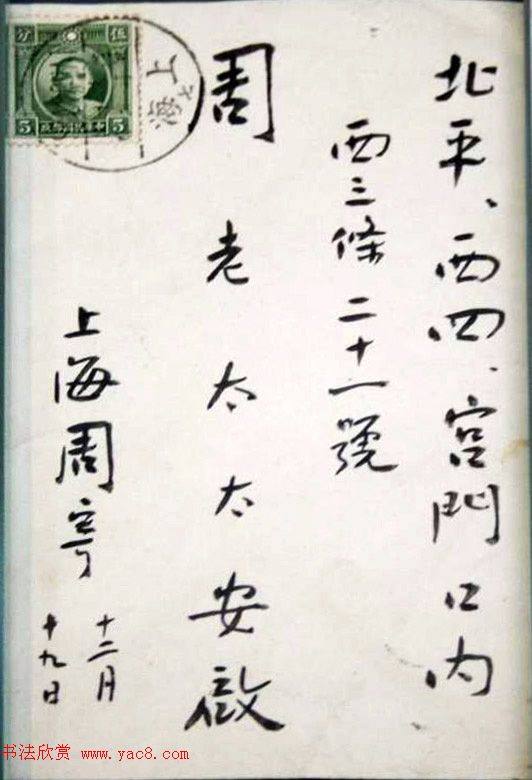 北平、西四、宮門口內
西三條二十一號
周老太太安啟
上海周寄
十二月
十九日
伍分
5 5
上海
书法欣赏 www.yac8.com